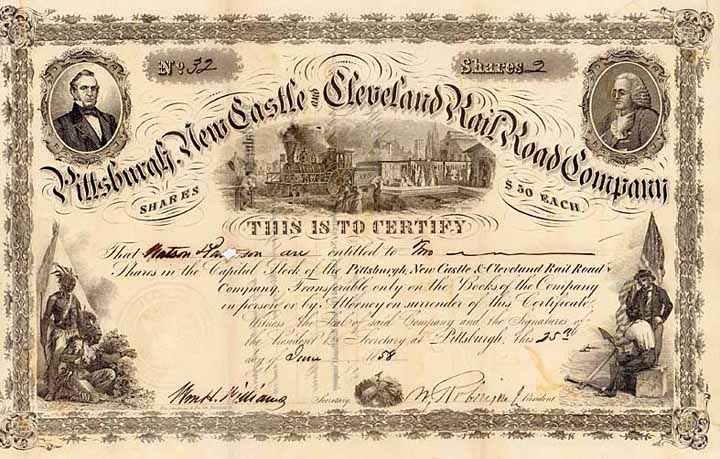 No 32
Shares 2
Pittsburgh, New Castle and Cleveland Rail Road Company
SHARES
$50 EACH
THIS IS TO CERTIFY
That Watson & son are entitled to Two
Shares in the Capital Stock of the Pittsburgh, New Castle & Cleveland Rail Road
Company, Transferable only on the Books of the Company
in person or by Attorney on surrender of this Certificate.
Witness, the Seal of said Company and the Signatures of
the President & Secretary at Pittsburgh, this 25th
day of June 1858
Wm H. Williams Secretary W. Robinson Jr President